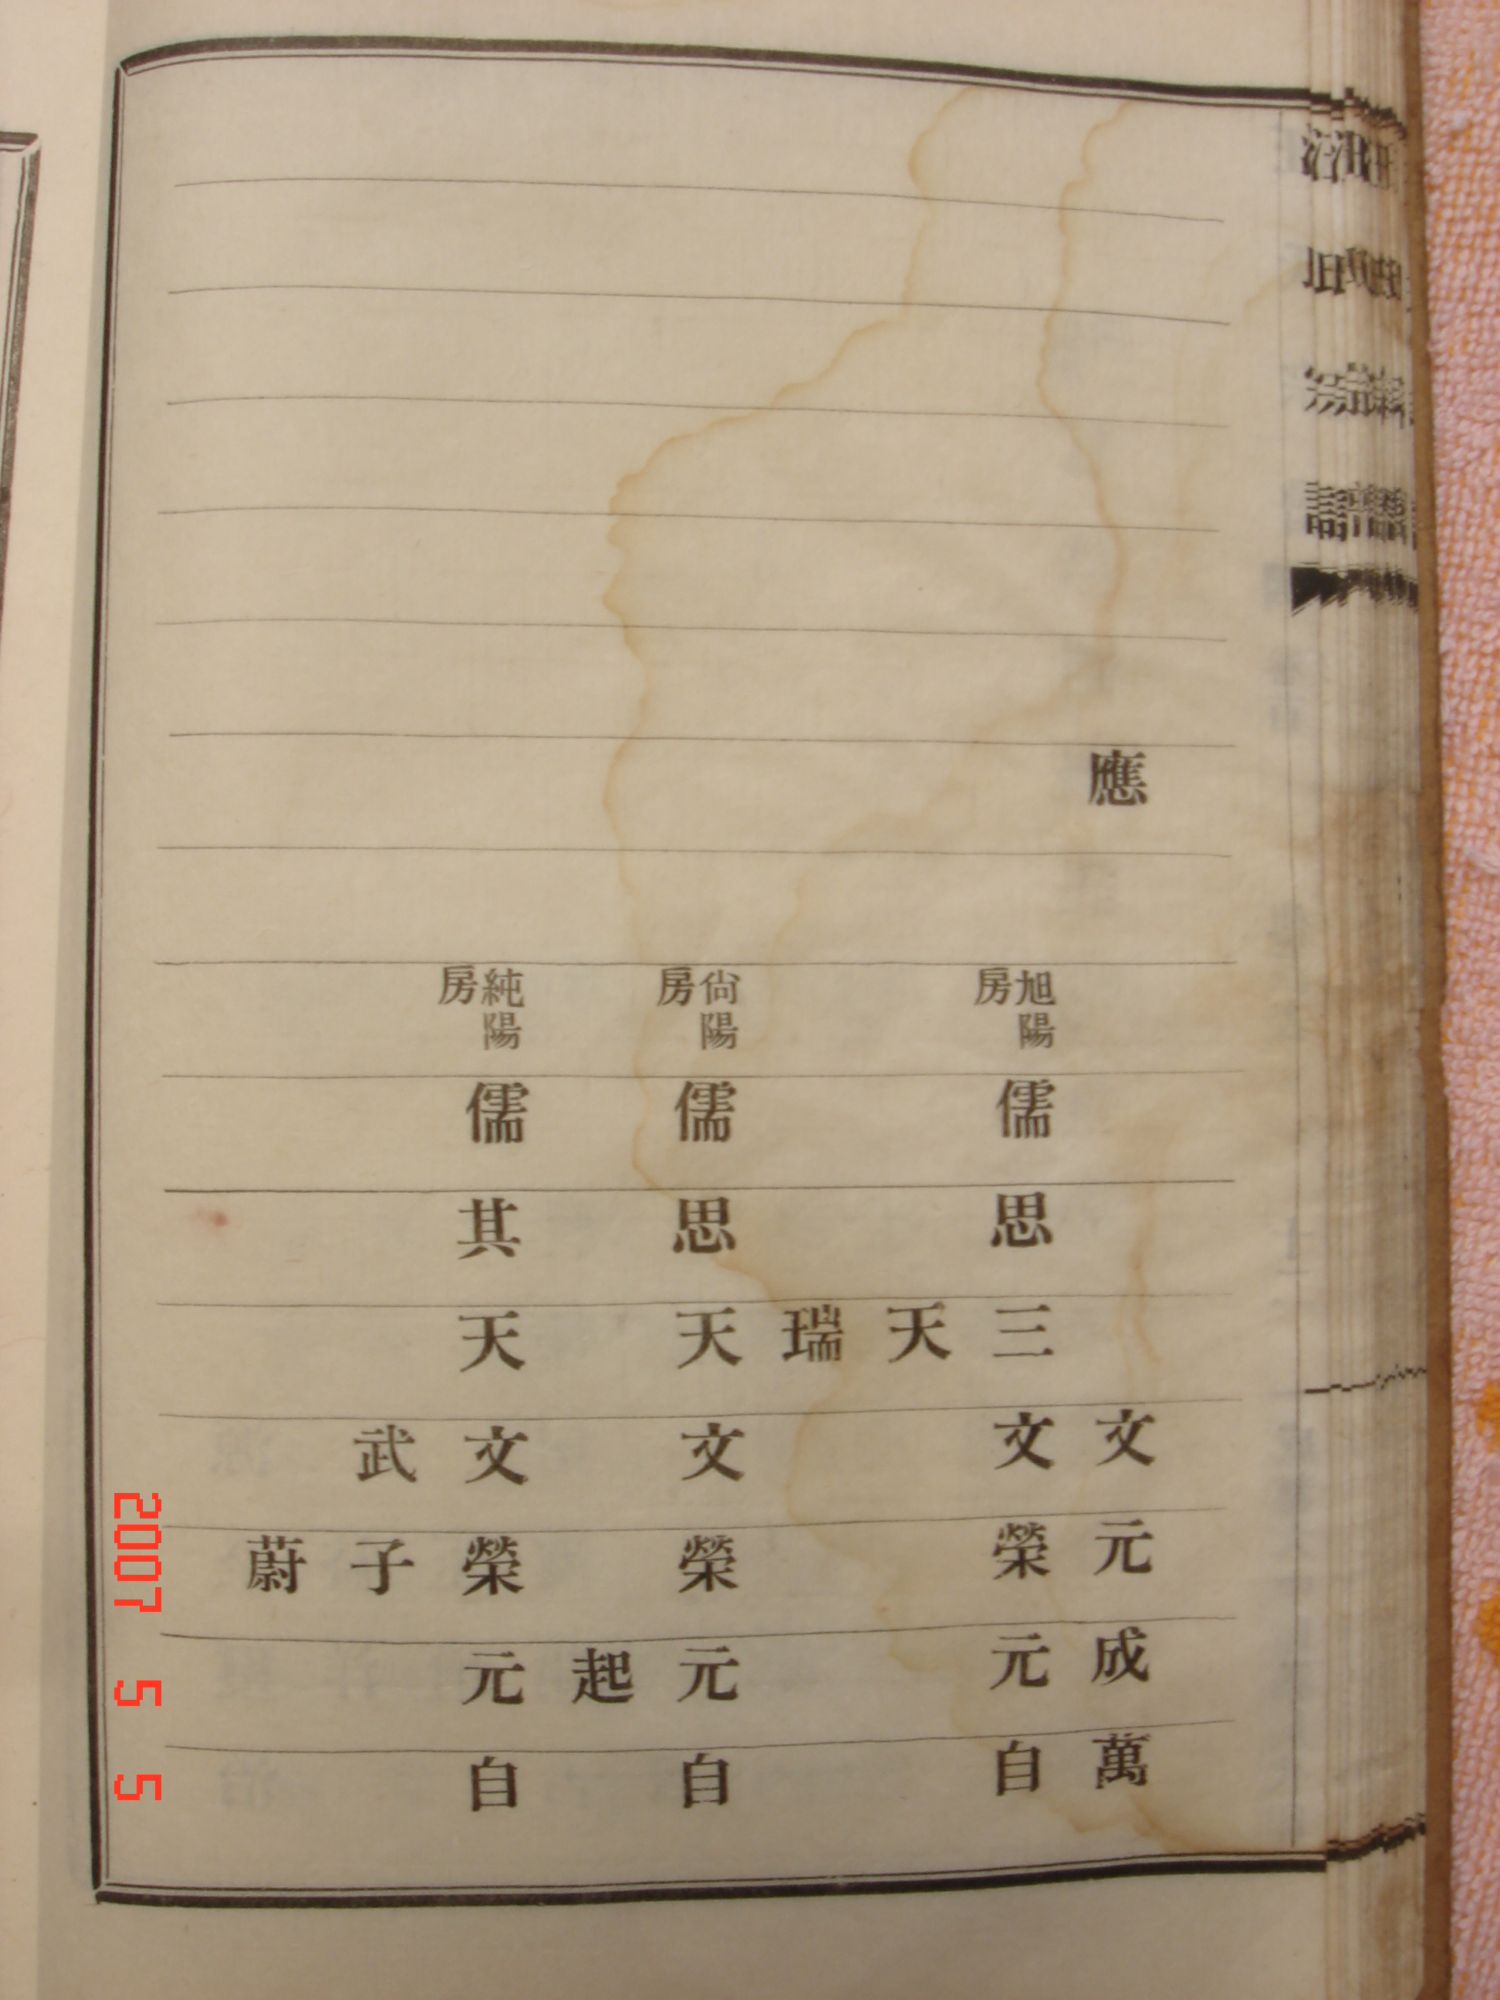 應
文元成萬
旭陽
房
儒思三文榮元自
天
瑞
尙陽
房
儒思天文榮元自
起
純陽
房
儒其天文榮元自
武子
蔚
2007 5 5